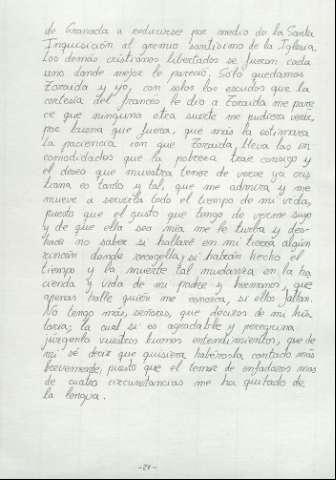 de Granada a reducirse por medio de la Santa
Inquisición al gremio santísimo de la Iglesia.
Los demás cristianos libertados se fueron cada
uno donde mejor le pareció. Sólo quedamos
Zoraida y yo, con solos los escudos que la
cortesía del francés le dio a Zoraida me pare
ce que ninguna otra suerte me pudiera venir,
por buena que fuera, que más la estimara
la paciencia con que Zoraida lleva las in-
comodidades que la pobreza trae consigo y
el deseo que muestra tener de verse ya cris
tiana es tanto y tal, que me admira y me
mueve a servirla todo el tiempo de mi vida,
puesto que el gusto que tengo de verme suyo
y de que ella sea mía me le turba y des-
hace no saber si hallaré en mi tierra algún
rincón donde recogella, si habrán hecho el
tiempo y la muerte tal mudanza en la ha
cienda y vida de mi padre y hermanos, que
apenas halle quién me conozca, si ellos faltan.
No tengo más, señores, que deciros de mi his
toria; la cual si es agradable y peregrina
júzguenlo vuestros buenos entendimientos, que de
mí sé decir que quisiera habérosla contado más
brevemente, puesto que el temor de enfadaros más
de cuatro circunstancias me ha quitado de
la lengua.
-27-